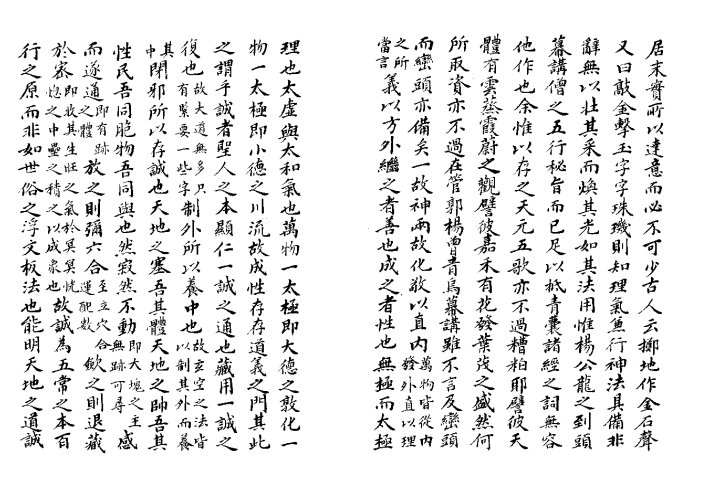 居末實所以達意而必不可少古人云擲地作金石聲
又曰敲金擊玉字字珠璣則知理氣兼行神法具備非
辭無以壯其采而煥其光如其法用惟楊公龍之到頭
幕講僧之五行秘旨而已足以抵青囊諸經之詞無容
他作也余惟以存之天元五歌亦不過糟粕耶譬彼天
體有雲蒸霞蔚之觀譬彼嘉禾有花發葉茂之盛然何
所取資亦不過在管郭楊曾青烏幕講雖不言及巒頭
而巒頭亦備矣一故神兩故化敬以直內萬物皆從內發外直以理
之所當言義以方外繼之者善也成之者性也無極而太極
理也太虛與太和氣也萬物一太極即大德之敦化一
物一太極即小德之川流故成性存存道義之門其此
之謂乎誠者聖人之本顯仁一誠之通也藏用一誠之
復也故大道無多只有緊要一些字制外所以養中也故玄空之法皆以制其外而養
其中閑邪所以存誠也天地之塞吾其體天地之帥吾其
性民吾同胞物吾同與也然寂然不動即大塊之主無跡可尋感
而遂通即有跡之體放之則彌六合至立穴合運配數斂之則退藏
於密即收其生旺之氣於冥冥恍惚之中壘之積之以成象也故誠為五常之本百
行之原而非如世俗之浮文板法也能明天地之道誠